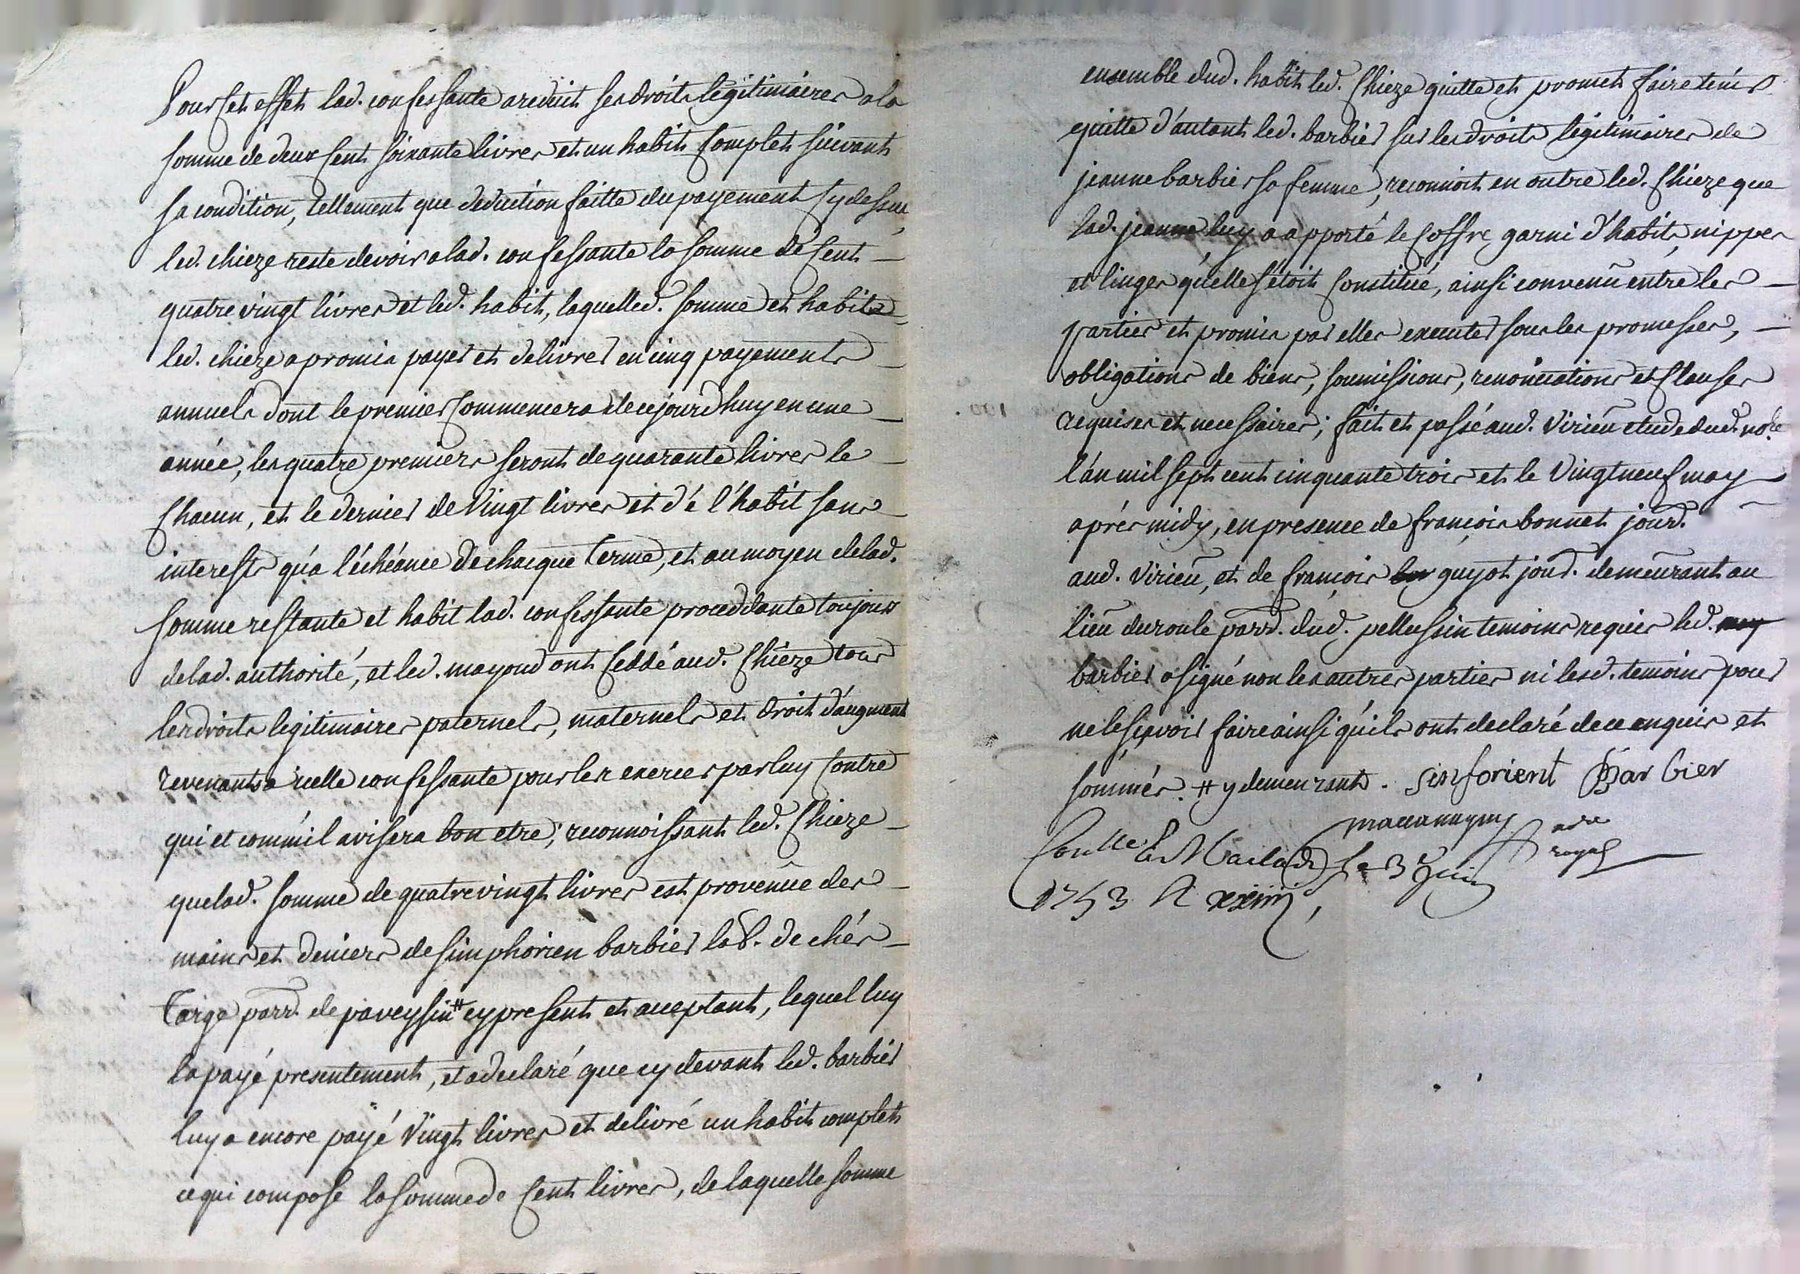 Pour cet effet lad. confessante a reduit ses droits legitimaires a la
somme de deux cent soixante livres et un habit complet suivant
sa condition, tellement que deduction faitte du payement cy dessus,
led. chieze reste devoir a lad. confessante la somme de cent
quatre vingt livres et led. habit, laquelled. somme et habits
led. chieze a promis payer et delivrer en cinq payements
annuels dont le premier commencera de ce jourd'huy en une
année, les quatre premiers seront de quarante livres le
chacun, et le dernier de vingt livres et d'é l'habit sans
interests qu'a l'échéance de chacque terme, et au moyen de lad.
somme restante et habit lad. confessante procedante toujours
de lad. authorité, et led. mayoud ont ceddé aud. chieze tous
les droits legitimaires paternels, maternels et droit d'augment
revenants a icelle confessante pour les exercer par luy contre
qui et comm'il avisera bon etre; reconnoissant led. chieze
que lad. somme de quatre vingt livres est provenüe des
mains et deniers de simphorien barbier lab. de chés
targe parr. de paveyssin # cy present et acceptant, lequel luy
la payé presentement, et a declaré que cy devant led. barbier
luy a encore payé vingt livres et delivré un habit complet
ce qui compose la somme de cent livres, de laquelle somme
ensemble dud. habit led. chieze quitte et promet faire tenir
quitte d'autant led. barbier sur les droits legitimaires de
jeanne barbier sa femme, reconnoit en outre led. chieze que
lad. jeanne luy a apporté le coffre garni d'habit, nippes
et linges qu'elle s'étoit constitué, ainsi convenü entre les
parties et promis par elles executer sous les promesses,
obligations de biens, soumissions, renonciations et clauses
requises et necessaires; fait et passé aud. virieü etude dud. nore.
l'an mil sept cent cinquante trois et le vingt neuf may
aprés midy, en presence de françois bonnet jourd.
aud. virieü, et de françois guyot jourd. demeurant au
lieü du roule parr. dud. pellussin temoins requis led.
barbier a signé non les autres parties ni lesd. temoins pour
ne le sçavoir faire ainsi qu'ils ont declaré de ce enquis et
sommés. # y demeurant. sinforient Barbier
nore
royal
Conlle. a Le 3e Juin
1753 R